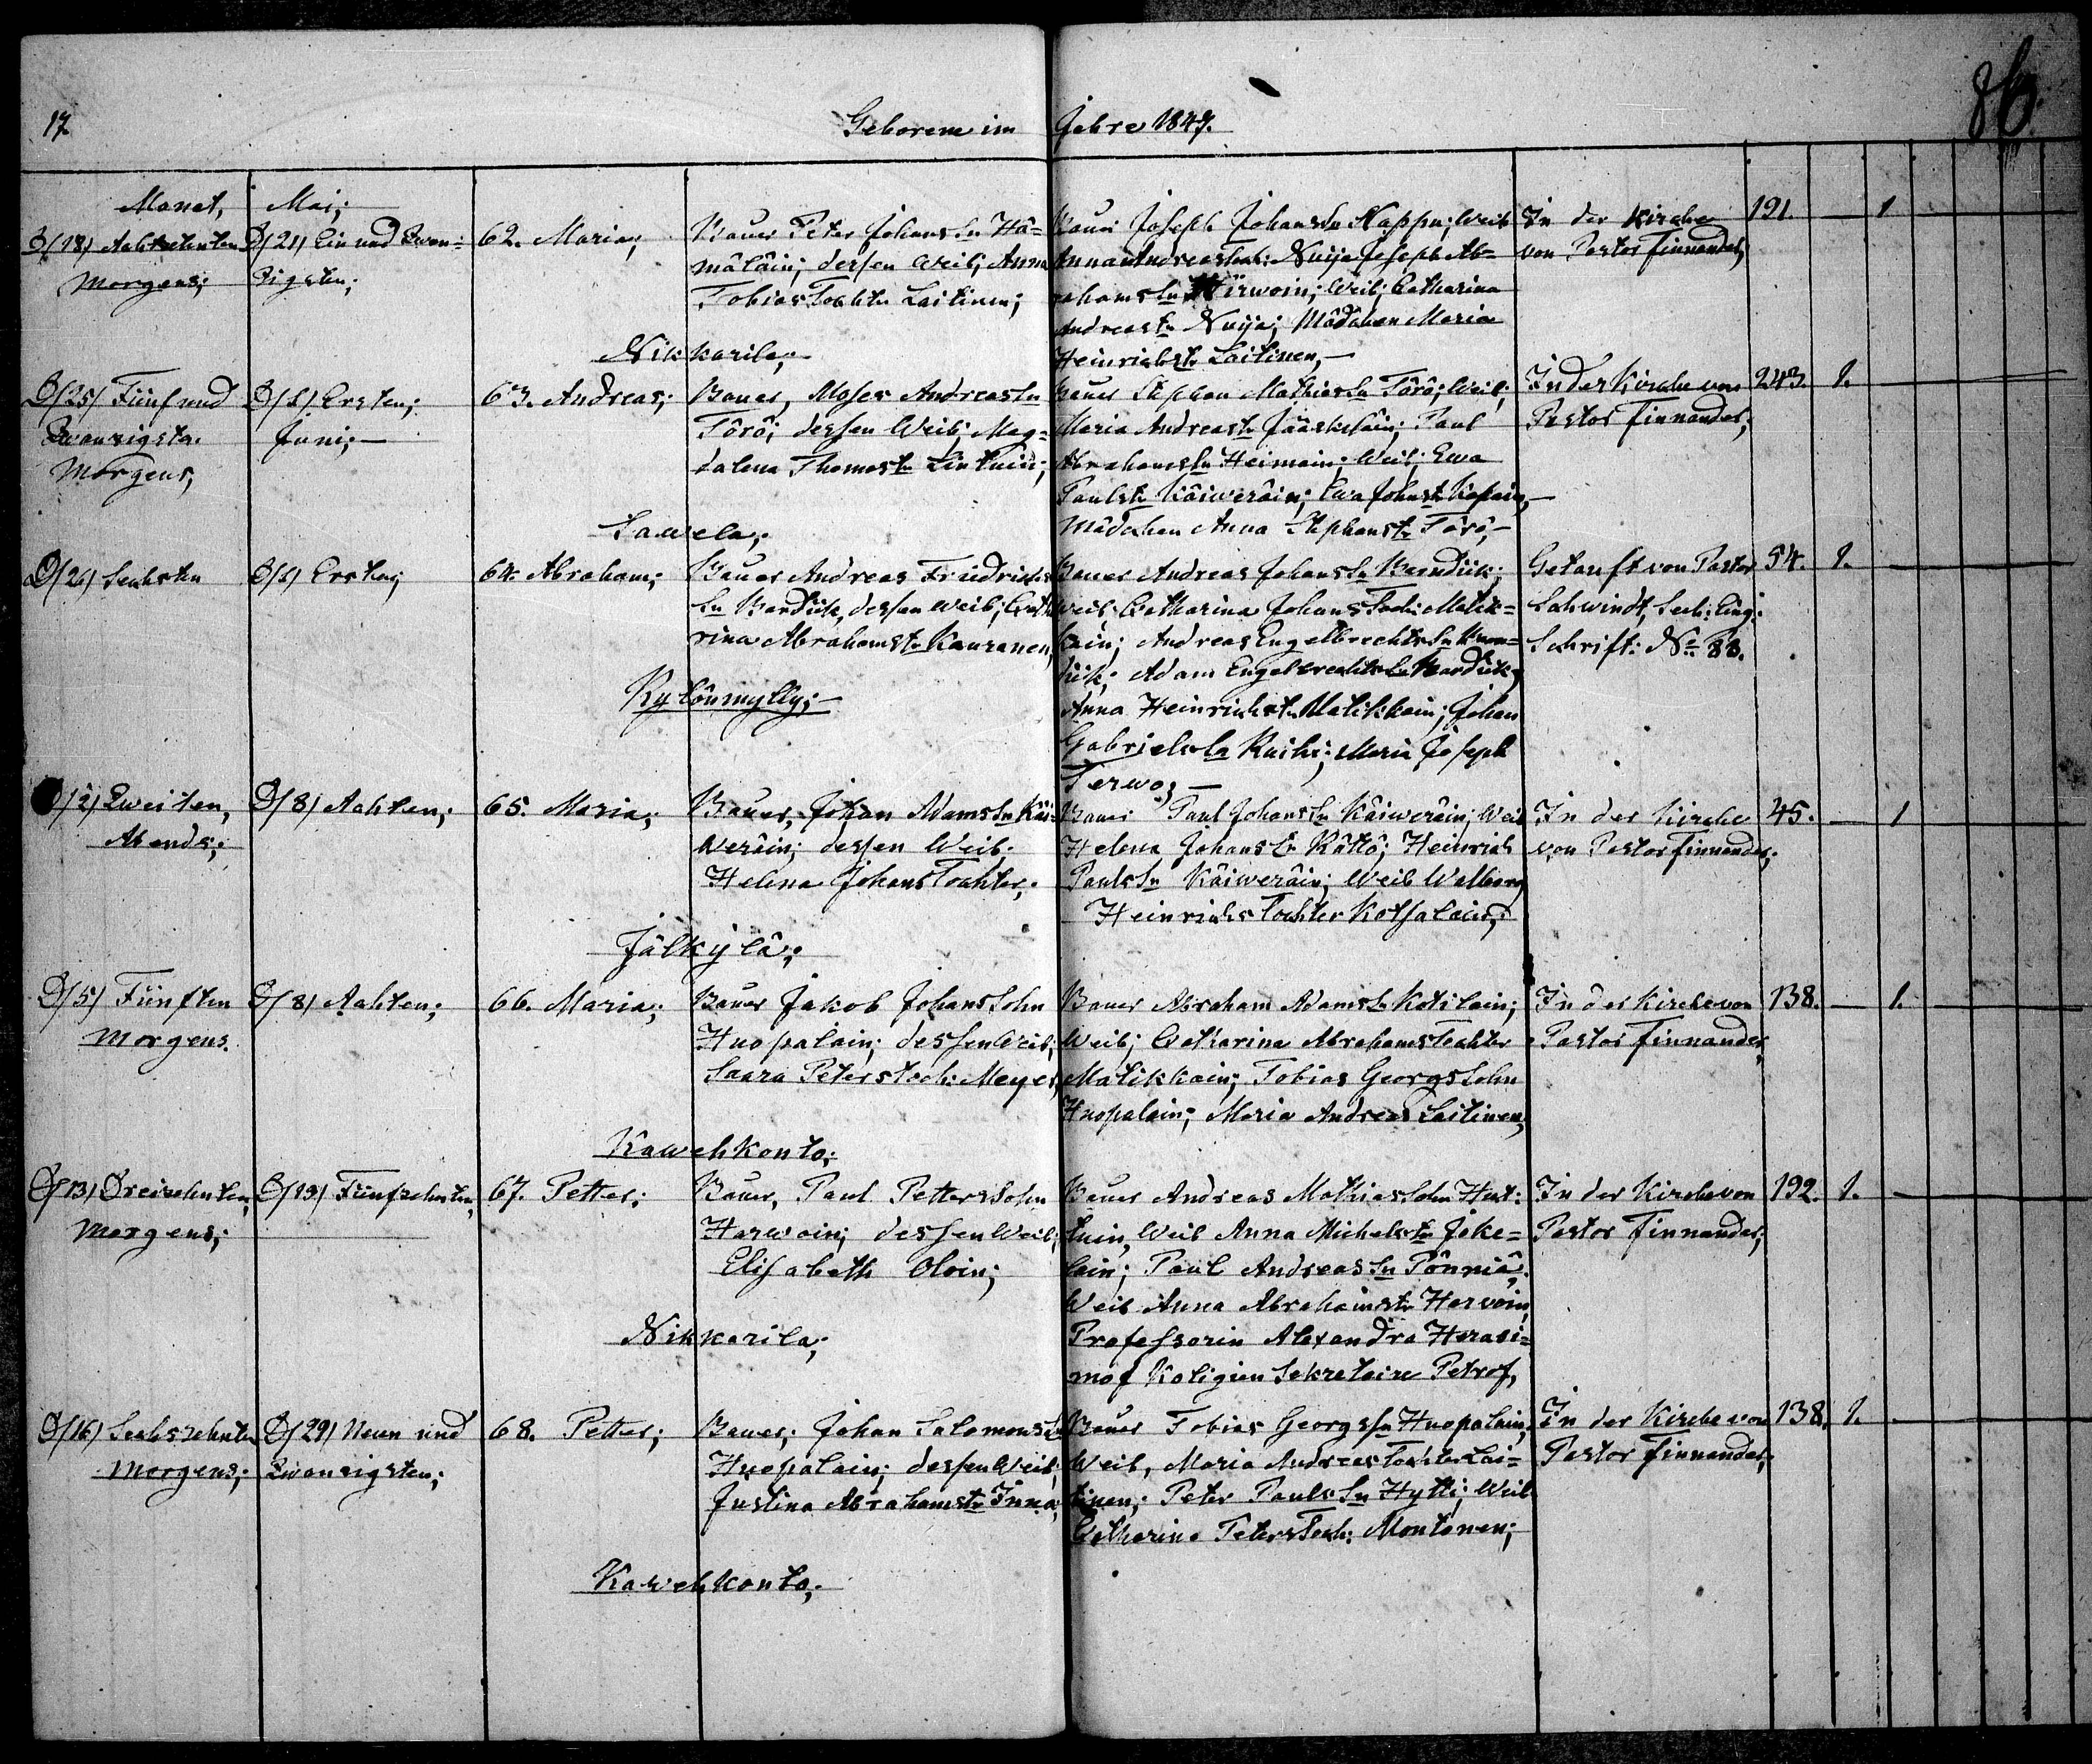 17
Geborene im Jahre 1847.
86.
Monat, Mai;
D/18/ Achtzehnten
Morgens;
D/21/ Ein und Zwan=
zigsten;
62. Maria;
Bauer Peter Johans Sn Hä=
mäläin; dessen Weib; Anna
Tobias Tochtr Laitinen;
Nikkarila;
Bauer Joseph Johans Sn Nappu; Weib
Anna Andreas Toch: Nuija Joseph Ab=
rahams Sn Hirwoin; Weib; Catharina
Andreastr Nuija; Mädchen Maria
Heinrichstr Laitinen,
In der Kirche
von Pastor Finnander;
191. — 1
D/25/ Fünf und
Zwanzigsten
Morgens,
D/1/ Ersten;
Juni;
63. Andreas;
Bauer, Moses Andreas Sn
Törö; dessen Weib; Mag=
dalena Thomastr Lintuin;
Sawela;
Bauer Stephan Mathias Sn Törö; Weib;
Maria Andreastr Jääskeläin; Paul
Abrahams Sn Heimain; Weib; Ewa
Paulstr Käiweräin; Ewa Johanstr Kopain,
Mädchen Anna Stephanstr Törö,
In der Kirche von
Pastor Finnander;
243. 1.
D/26/ Sechsten
D/1/ Ersten;
64. Abraham;
Bauer Andreas Friedrichs
Sn Bardük, dessen Weib; Catha
rina Abrahamstr Kauranen,
Kylönmylly;
Bauer Andreas Johans Sn Barndük;
Weib; Catharina Johans Toch: Matik=
kain; Andreas Engelbrechts Sn
dük; Adam Engelbrechts Sn Bardük,
Anna Heinrichstr Matikkain; Johan
Gabriels Sn Ruihi; Maria Joseph
Terwo;
Getauft von Pastor
Schwindt, Sech: Eing:
Schrift: No 88.
54. 1.
D/2/ Zweiten,
Abends;
D/8/ Achten;
65. Maria;
Bauer, Johan Adams Sn Käi=
weräin; dessen Weib.
Helena Johans Tochter.
Jälkylä;
Bauer Paul Johans Sn Käiweräin; Weib
Helena Johanstr Rättö; Heinrich
Pauls Sn Käiweräin; Weib Walborg
Heinrichs Tochter Kotsalain;
In der Kirche
von Pastor Finnander;
45. — 1
D/5/ Fünften
Morgens.
D/8/ Achten;
66. Maria;
Bauer Jakob Johans Sohn
Huopalain; dessen Weib;
Saara Peters toch: Meyer,
Kawehkonto;
Bauer Abraham Adams Sn Kotilain;
Weib; Catharina Abrahams Tochter
Matikkain; Tobias Georgs Sohn
Huopalain; Maria Andreas Laitinen,
In der Kirche von
Pastor Finnander,
138. — 1.
D/13/ Dreizehnten,
Morgens;
D/15/ Fünfzehnten,
67. Petter;
Bauer, Paul Petters Sohn
Harwoin; dessen Weib;
Elisabeth Oloin;
Nikkarila;
Bauer Andreas Mathias Sohn Hut:
tuin, Weib Anna Michelstr Joke=
lain; Paul Andreas Sn Pönniä;
Weib Anna Abrahamstr Harvoin,
Professorin Alexandra Harasi=
mof Koligien Sekretaire Petrof,
In der Kirche von
Pastor Finnander;
192. 1.
D/16/ Sechszehnten
Morgens;
D/29/ Neun und
Zwanzigsten;
68. Petter;
Bauer; Johan Salomons Sn
Huopalain; dessen Weib;
Justina Abrahamstr Inna;
Kawehkonto;
Bauer Tobias Georgs Sn Huopalain,
Weib, Maria Andreas Tochter Lai=
tinen; Peter Pauls Sn Hytti; Weib
Catharina Peters Toch: Montonen;
In der Kirche von
Pastor Finnander;
138. 1.